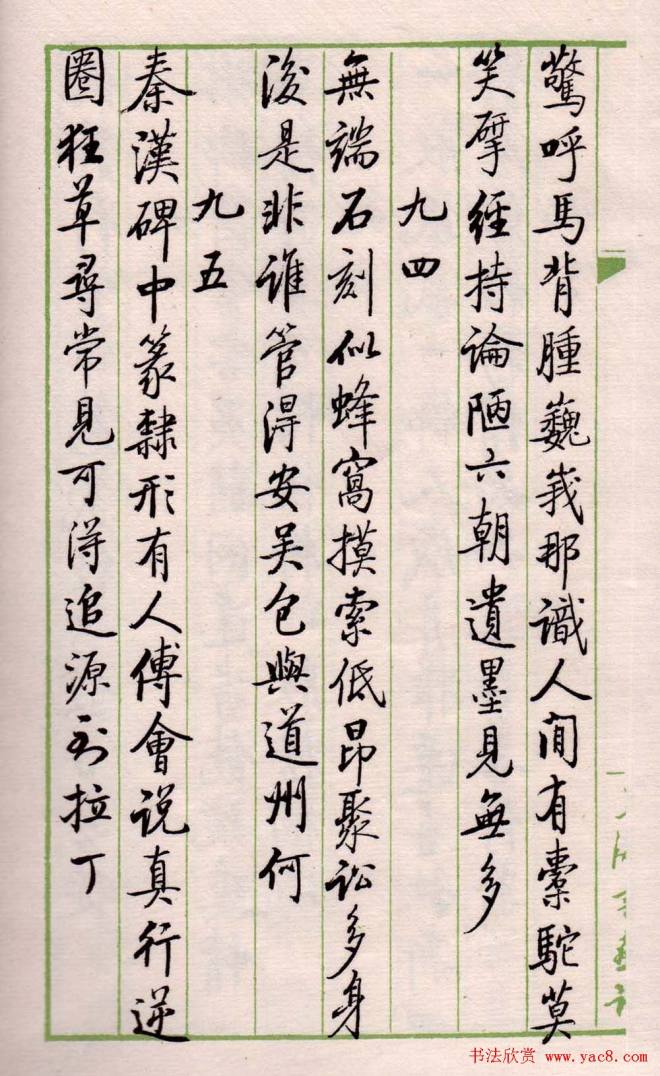 驚呼馬背腫巍峩那識人间有橐駝莫
笑揅經持論陋六朝遺墨見無多
九四
無端石刻似蜂窩摸索低昂聚訟多身
後是非誰管得安吴包與道州何
九五
秦漢碑中篆隸形有人傅會说真行逆
圈狂草尋常見可得追源到拉丁
书法欣赏 www.yac8.com